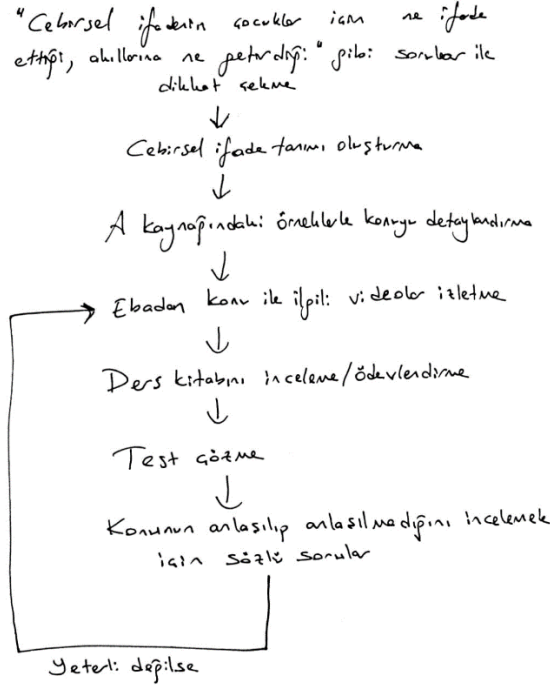 "Cebirsel ifadenin çocuklar için ne ifade
ettiği, akıllarına ne getirdiği" gibi sorular ile
dikkat çekme
Cebirsel ifade tanımı oluşturma
A kaynağındaki örneklerle konuyu detaylandırma
Ebadan konu ile ilgili videolar izletme
Ders kitabını inceleme/ödevlendirme
Test çözme
Konunun anlaşılıp anlaşılmadığını incelemek
için sözlü sorular
Yeterli değilse